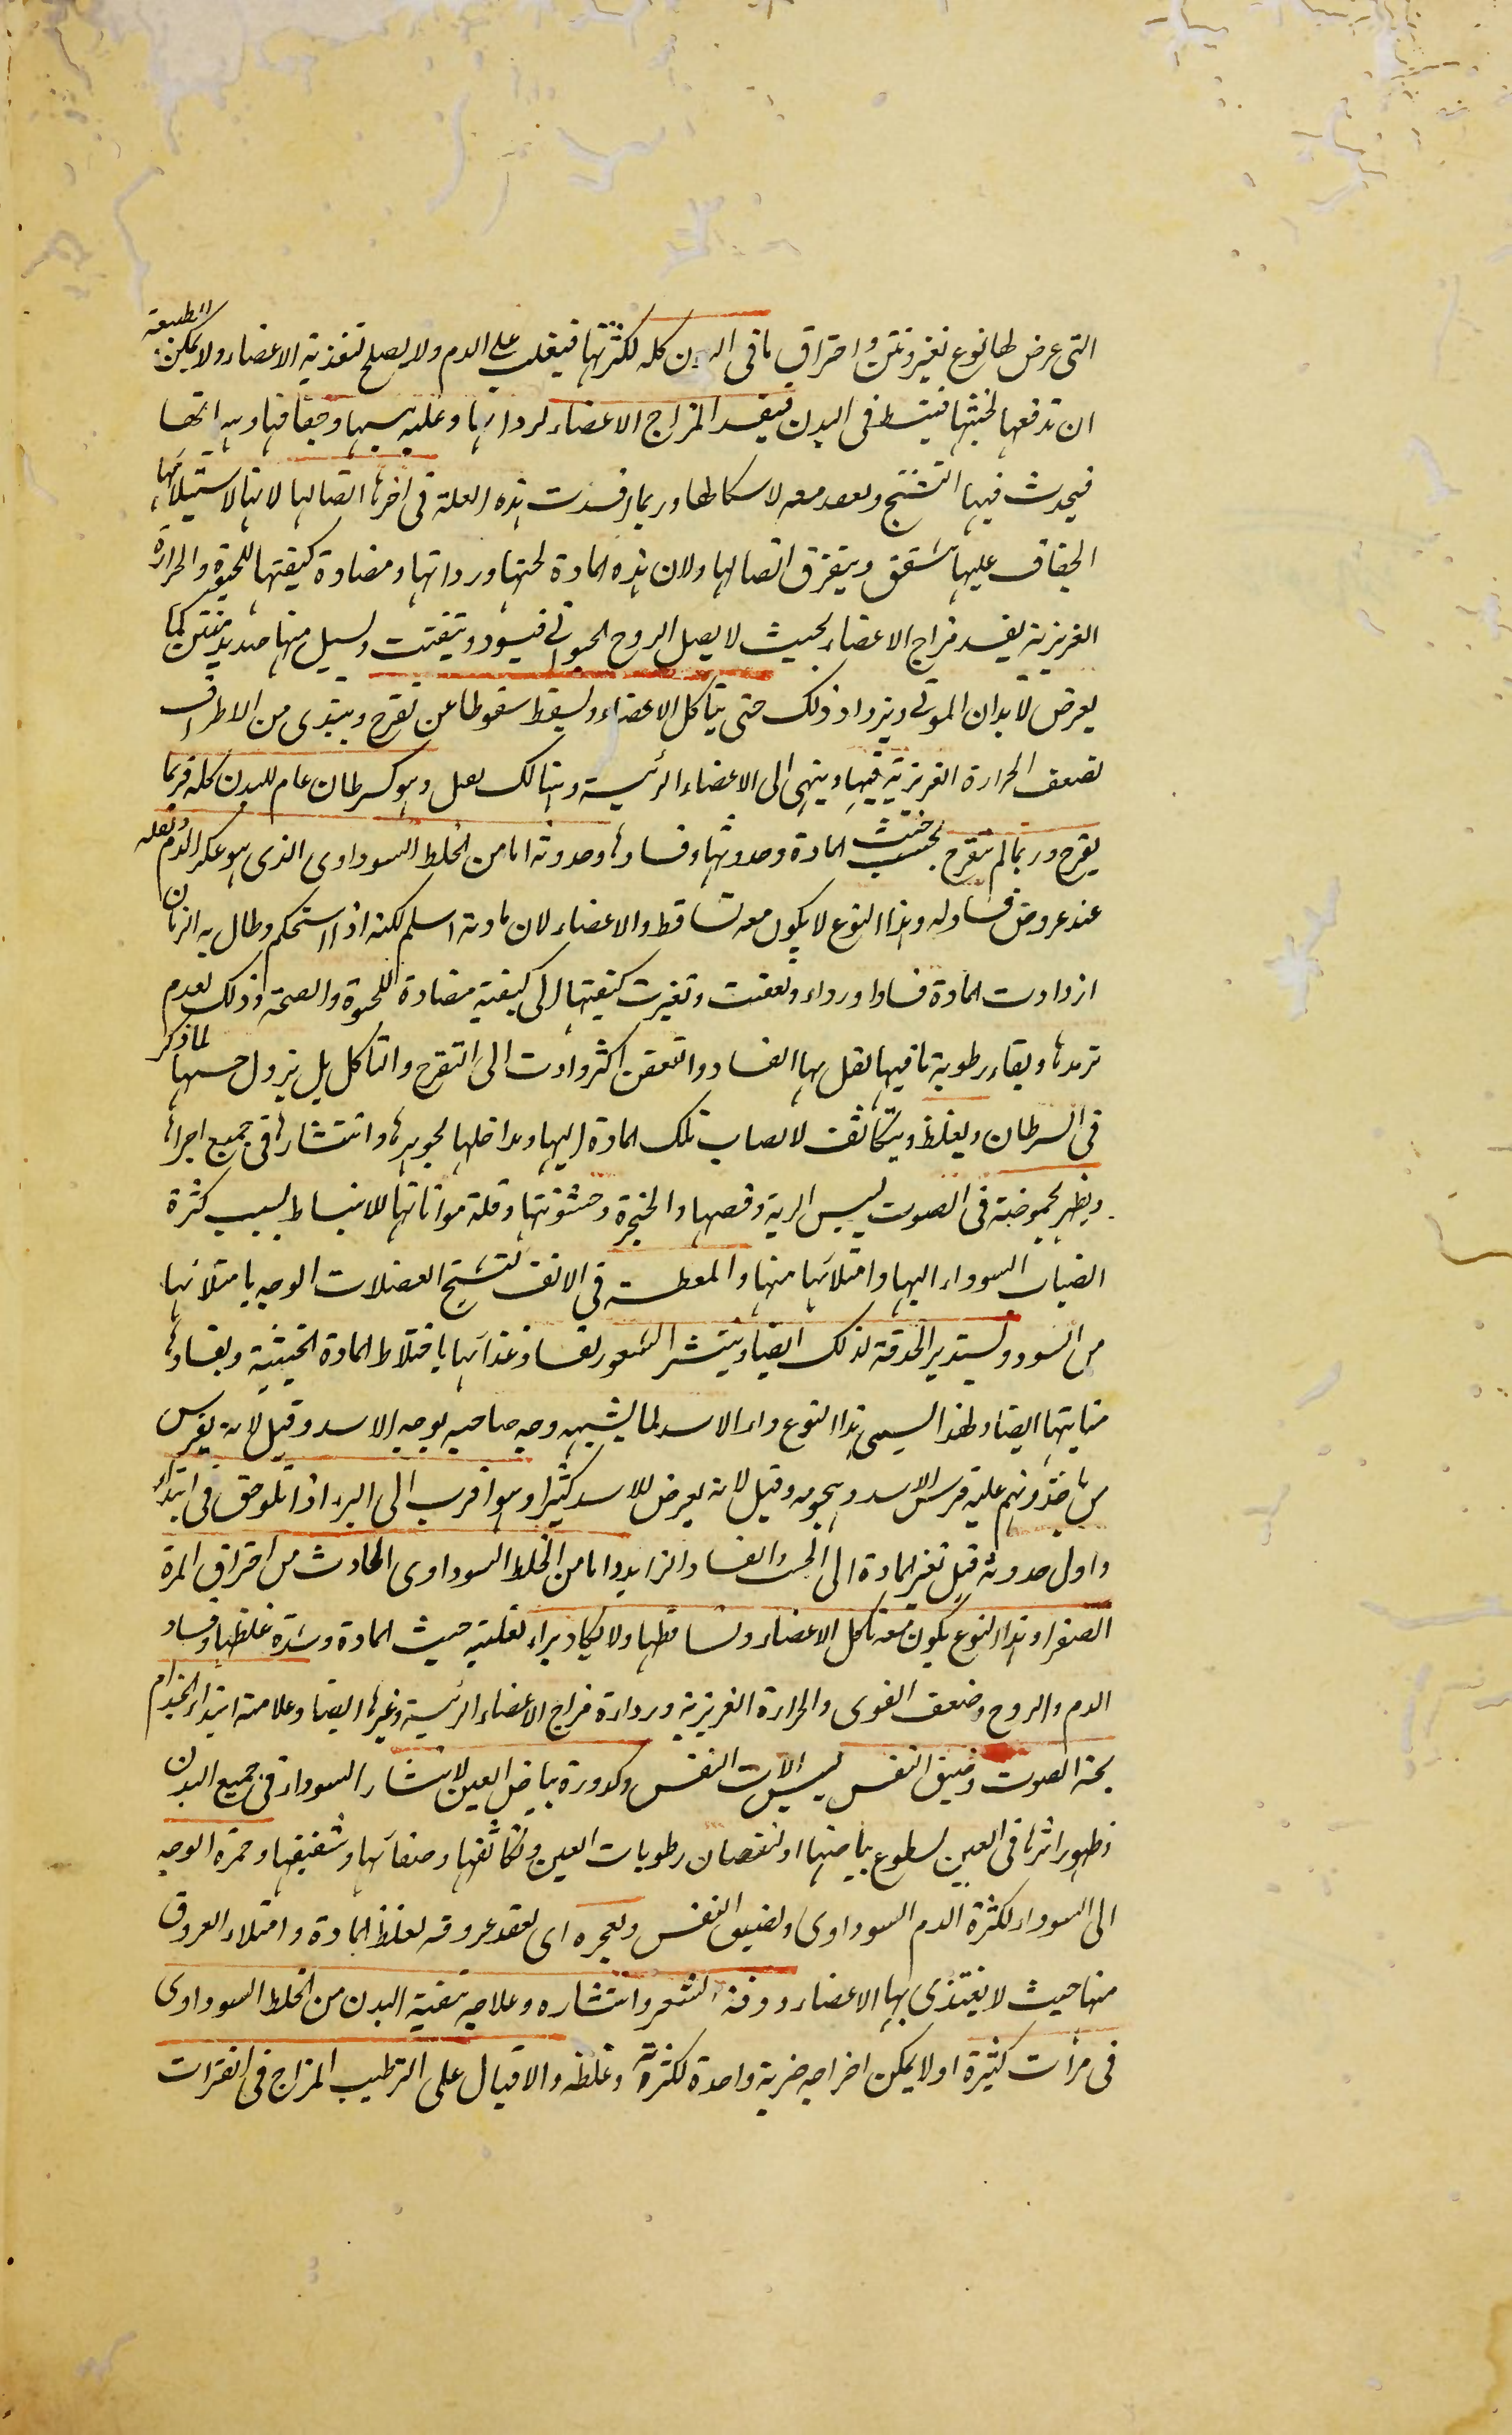 التى عرض لها نوع تغير ونتن واحتراق ما فى البدن كله لكثرتها فيغلب على الدم ولا يصلح لتغذية الاعضاء ولا يمكن الطبيعة
ان تدفعها لخبثها فينبسط فى البدن فيفسد المزاج الاعضاء لرداتها وغلبه يبسها وجفافها
فيحدث فيها التشنج معه وربما افسدت هذه العلة فى اخرها اتصالها لانها لاستيلائها
الجفاف عليها تشقق ويتفرق اتصالها ولان هذه المادة لخبثها ورداتها ومضادة كيفيتها للحيوة والحرارة
الغريزية يفسد مزاج الاعضاء بحيث لا يصل الروح الحيوانى فيسود ويتفتت ويسيل منها صديد منتن كما
يعرض لابدان الموتى ويزداد ذلك حتى يتاكل الاعضاء ويسقط سقوطا عن تقرح ويبتدى من الاطراف
لضعف الحرارة الغريزية فيها وينتهى الى الاعضاء الرئيسة وهنالك يقتل وهو كسرطان عام للبدن كله فربما
يقرح وربما لم يتقرح بحسب خبث المادة وحدوثها وفسادها وحدوثه اما من الخلط السوداوى الذى هو عكر الدم وثفله
عند عروض فساد له وهذا النوع لا يكون معه تساقط والاعضاء لان مادته اسلم لكنه اذا استحكم وطال به الزمان
ازدادت المادة فسادا ورداء وتعفنت وتغيرت كيفيتها الى كيفية مضادة للحيوة والصحة وذلك لعدم
ترمدها وبقاء رطوبة ما فيها يقبل بها الفساد والتعفن اكثر وادت الى التقرح والتاكل بل يزول حسها لما ذكر
فى السرطان ويغلظ ويتكاثف لانصباب تلك المادة اليها ومداخلها لجوهرها وانتشارها فى جميع اجزائها
ويظهر بحموضة فى الصوت ليبس الرية وقصبها والحنجرة وخشونتها وقلة مواتاتها للانبساط بسبب كثرة
انصباب السوداء اليها وامتلائها منها والفطسة فى الانف لتشنج العضلات الوجه بامتلائها
من السود ويستدير الحدقة لذلك ايضا وينتثر الشعور لفساد غذائها باختلاط المادة الخبيثة وبفسادها
منابتها ايضا ولهذا يسمى هذا النوع داء الاسد لما يشبه وجه صاحبه بوجه الاسد وقيل لانه يفرس
من ياخذه ويهجم عليه فرس الاسد وهجومه وقيل لانه يعرض للاسد كثيرا وهو اقرب الى البرء اذا تلوحق فى ابتدائه
واول حدوثه قبل تغير المادة الى الخبث والفساد الزايد واما من الخلط السوداوى الحادث من احتراق المرة
الصفرا وهذا النوع يكون معه تاكل الاعضاء وتساقطها ولا يكاد يبراء لغلبته حيث المادة وشدة غلظها وفساد
الدم والروح وضعف القوى والحرارة الغريزية ورداءة مزاج الاعضاء الرئيسة وغيرها ايضا وعلامته ابتداء الجذام
بحة الصوت وضيق النفس ليبس الات النفس وكدورة بياض العين لانتشار السوداء فى جميع البدن
وظهور اثرها فى العين لسطوع بياضها او لنقصان رطوبات العين وتكاثفها وصفائها وشفيفها وحمرة الوجه
الى السواد لكثرة الدم السوداوى وتضيق النفس وتعجره اى تعقد عروقه لغلظ المادة وامتلاء العروق
منها حيث لا يغتذى بها الاعضاء ودقة الشعر وانتشاره وعلاجه تنقية البدن من الخلط السوداوى
فى مرات كثيرة اولا يمكن اخراجه ضربة واحدة لكثرته وغلظه والاقبال على الترطيب المزاج فى الفترات